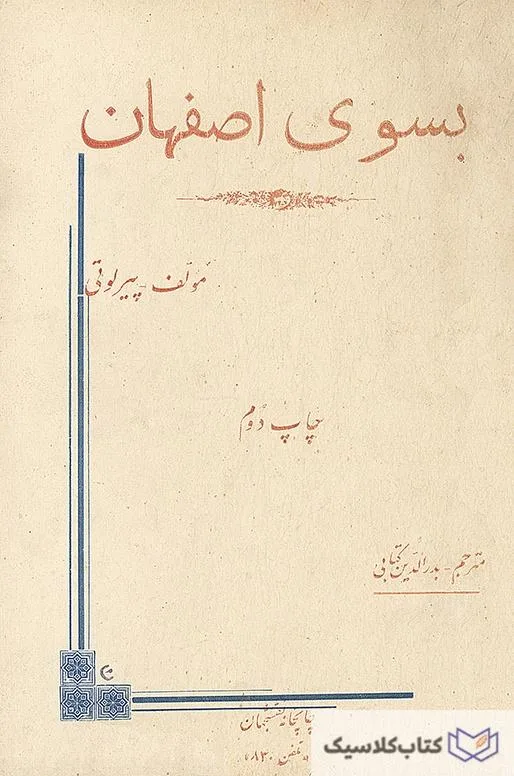 بسوی اصفهان
مؤلف - پیرلوتی
چاپ دوم
مترجم - بدرالدین کتابی
چاپخانه نقشجهان
تلفن ۸۳۰
کتاب کلاسیک